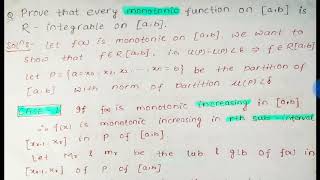 Q Prove that every monotonic function on [a,b] is
R - integrable on [a,b].
Soln:- Let f(x) is monotonic on [a,b], we want to
show that f∈R[a,b], i.e. U(P)-L(P)<ε ⇒ f∈R[a,b]
Let P={a=x₀, x₁, x₂, ... xₙ=b} be the partition of
[a,b] with norm of partition μ(P)<δ
Case-1 If f(x) is monotonic increasing in [a,b]
∴ f(x) is monotonic increasing in rth sub-interval
[xr-1, xr] in P of [a,b]
Let Mr & mr be the lub & glb of f(x) in
[xr-1, xr] of P of [a,b]